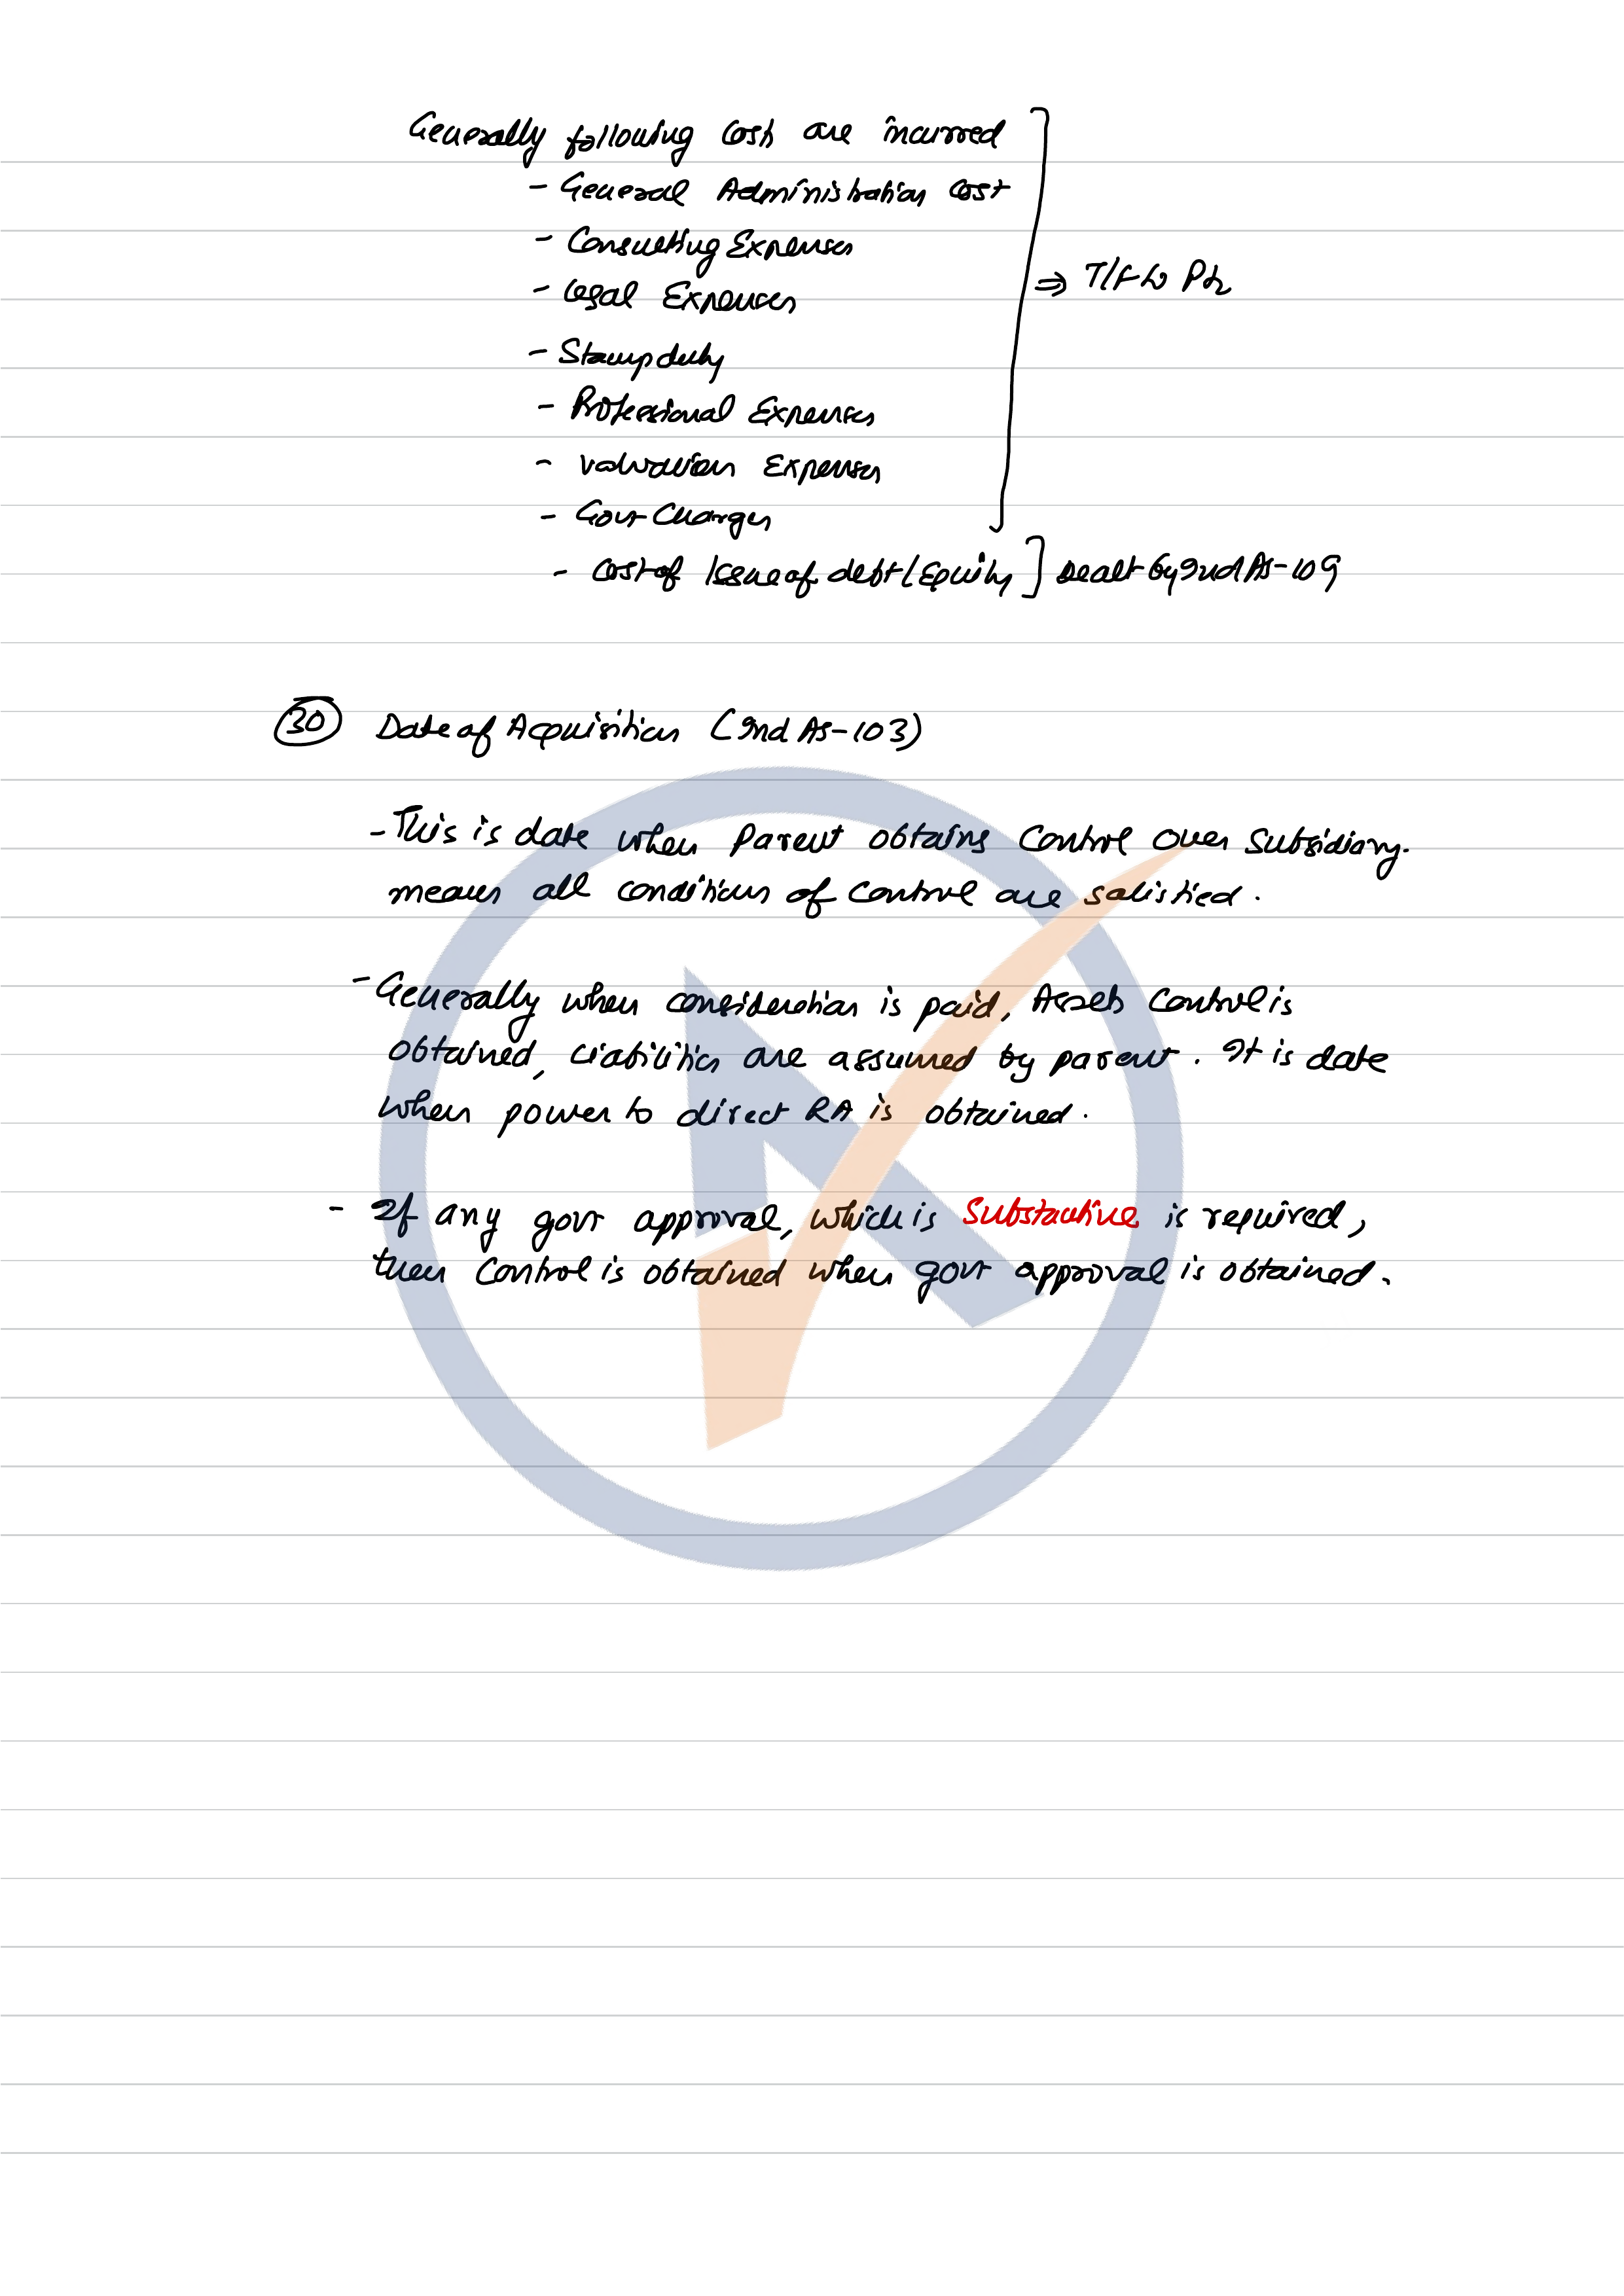 Generally following cost are incurred
- General Administration cost
- Consulting Expenses
- Legal Expenses
⇒ T/f to P&L
- Stamp duty
- Professional Expenses
- valuation Expenses
- Govt Charges
- cost of Issue of debt/Equity ] Dealt by Ind AS-109
30 Date of Acquisition (Ind AS-103)
- This is date when Parent obtains Control over Subsidiary.
means all conditions of control are satisfied.
- Generally when consideration is paid, Assets Control is
obtained, liabilities are assumed by parent. It is date
when power to direct RA is obtained.
- If any govt approval, which is Substantive is required,
then Control is obtained when govt approval is obtained.